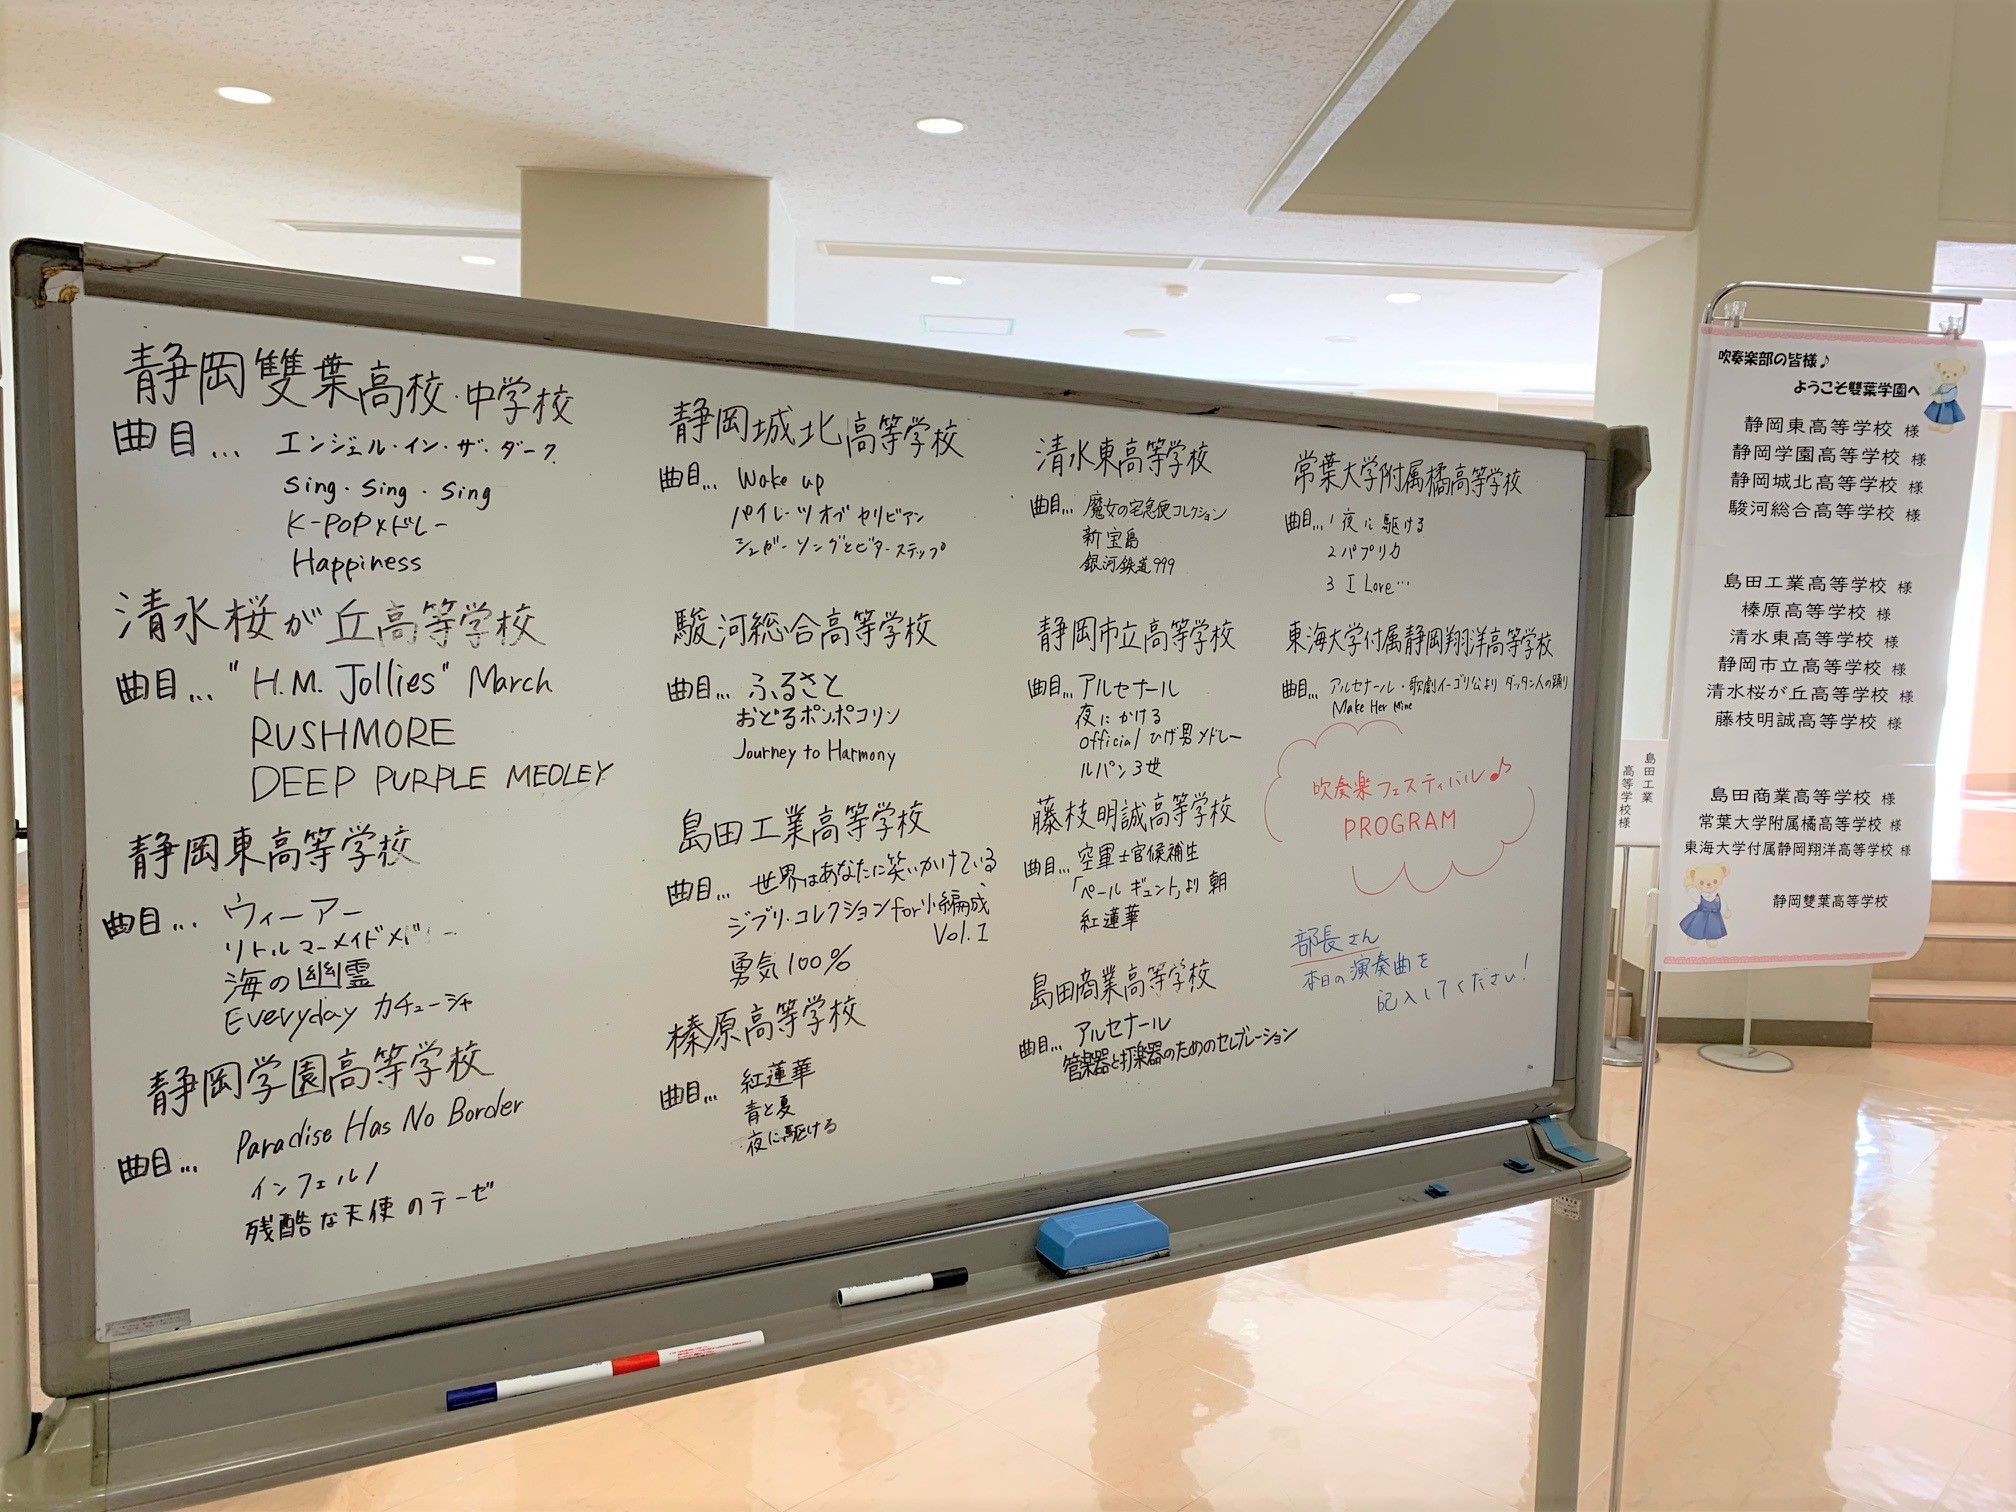 静岡雙葉高校・中学校
曲目… エンジェル・イン・ザ・ダーク
Sing・Sing・Sing
K-POPメドレー
Happiness
清水桜が丘高等学校
曲目… "H.M. Jollies" March
RUSHMORE
DEEP PURPLE MEDLEY
静岡東高等学校
曲目… ウィーアー
リトルマーメイドメドレー
海の幽霊
Everyday カチューシャ
静岡学園高等学校
曲目… Paradise Has No Border
インフェルノ
残酷な天使のテーゼ
静岡城北高等学校
曲目… Wake up
パイレーツオブカリビアン
シュガーソングとビターステップ
駿河総合高等学校
曲目… ふるさと
おどるポンポコリン
Journey to Harmony
島田工業高等学校
曲目… 世界はあなたに笑いかけている
ジブリ・コレクション for 小編成
Vol.1
勇気100%
榛原高等学校
曲目… 紅蓮華
青と夏
夜に駆ける
清水東高等学校
曲目… 魔女の宅急便コレクション
新宝島
銀河鉄道999
静岡市立高等学校
曲目… アルセナール
夜にかける
Official ひげ男メドレー
ルパン3世
藤枝明誠高等学校
曲目… 空軍士官候補生
「ペールギュント」より 朝
紅蓮華
島田商業高等学校
曲目… アルセナール
管楽器と打楽器のためのセレブレーション
常葉大学附属橘高等学校
曲目… 1 夜に駆ける
2 パプリカ
3 I Love…
東海大学付属静岡翔洋高等学校
曲目… アルセナール・歌劇イーゴリ公より ダッタン人の踊り
Make Her Mine
吹奏楽フェスティバル♪
PROGRAM
部長さん
本日の演奏曲を
記入してください!
島田工業
高等学校様
吹奏楽部の皆様♪
ようこそ雙葉学園へ
静岡東高等学校 様
静岡学園高等学校 様
静岡城北高等学校 様
駿河総合高等学校 様
島田工業高等学校 様
榛原高等学校 様
清水東高等学校 様
静岡市立高等学校 様
清水桜が丘高等学校 様
藤枝明誠高等学校 様
島田商業高等学校 様
常葉大学附属橘高等学校 様
東海大学付属静岡翔洋高等学校 様
静岡雙葉高等学校